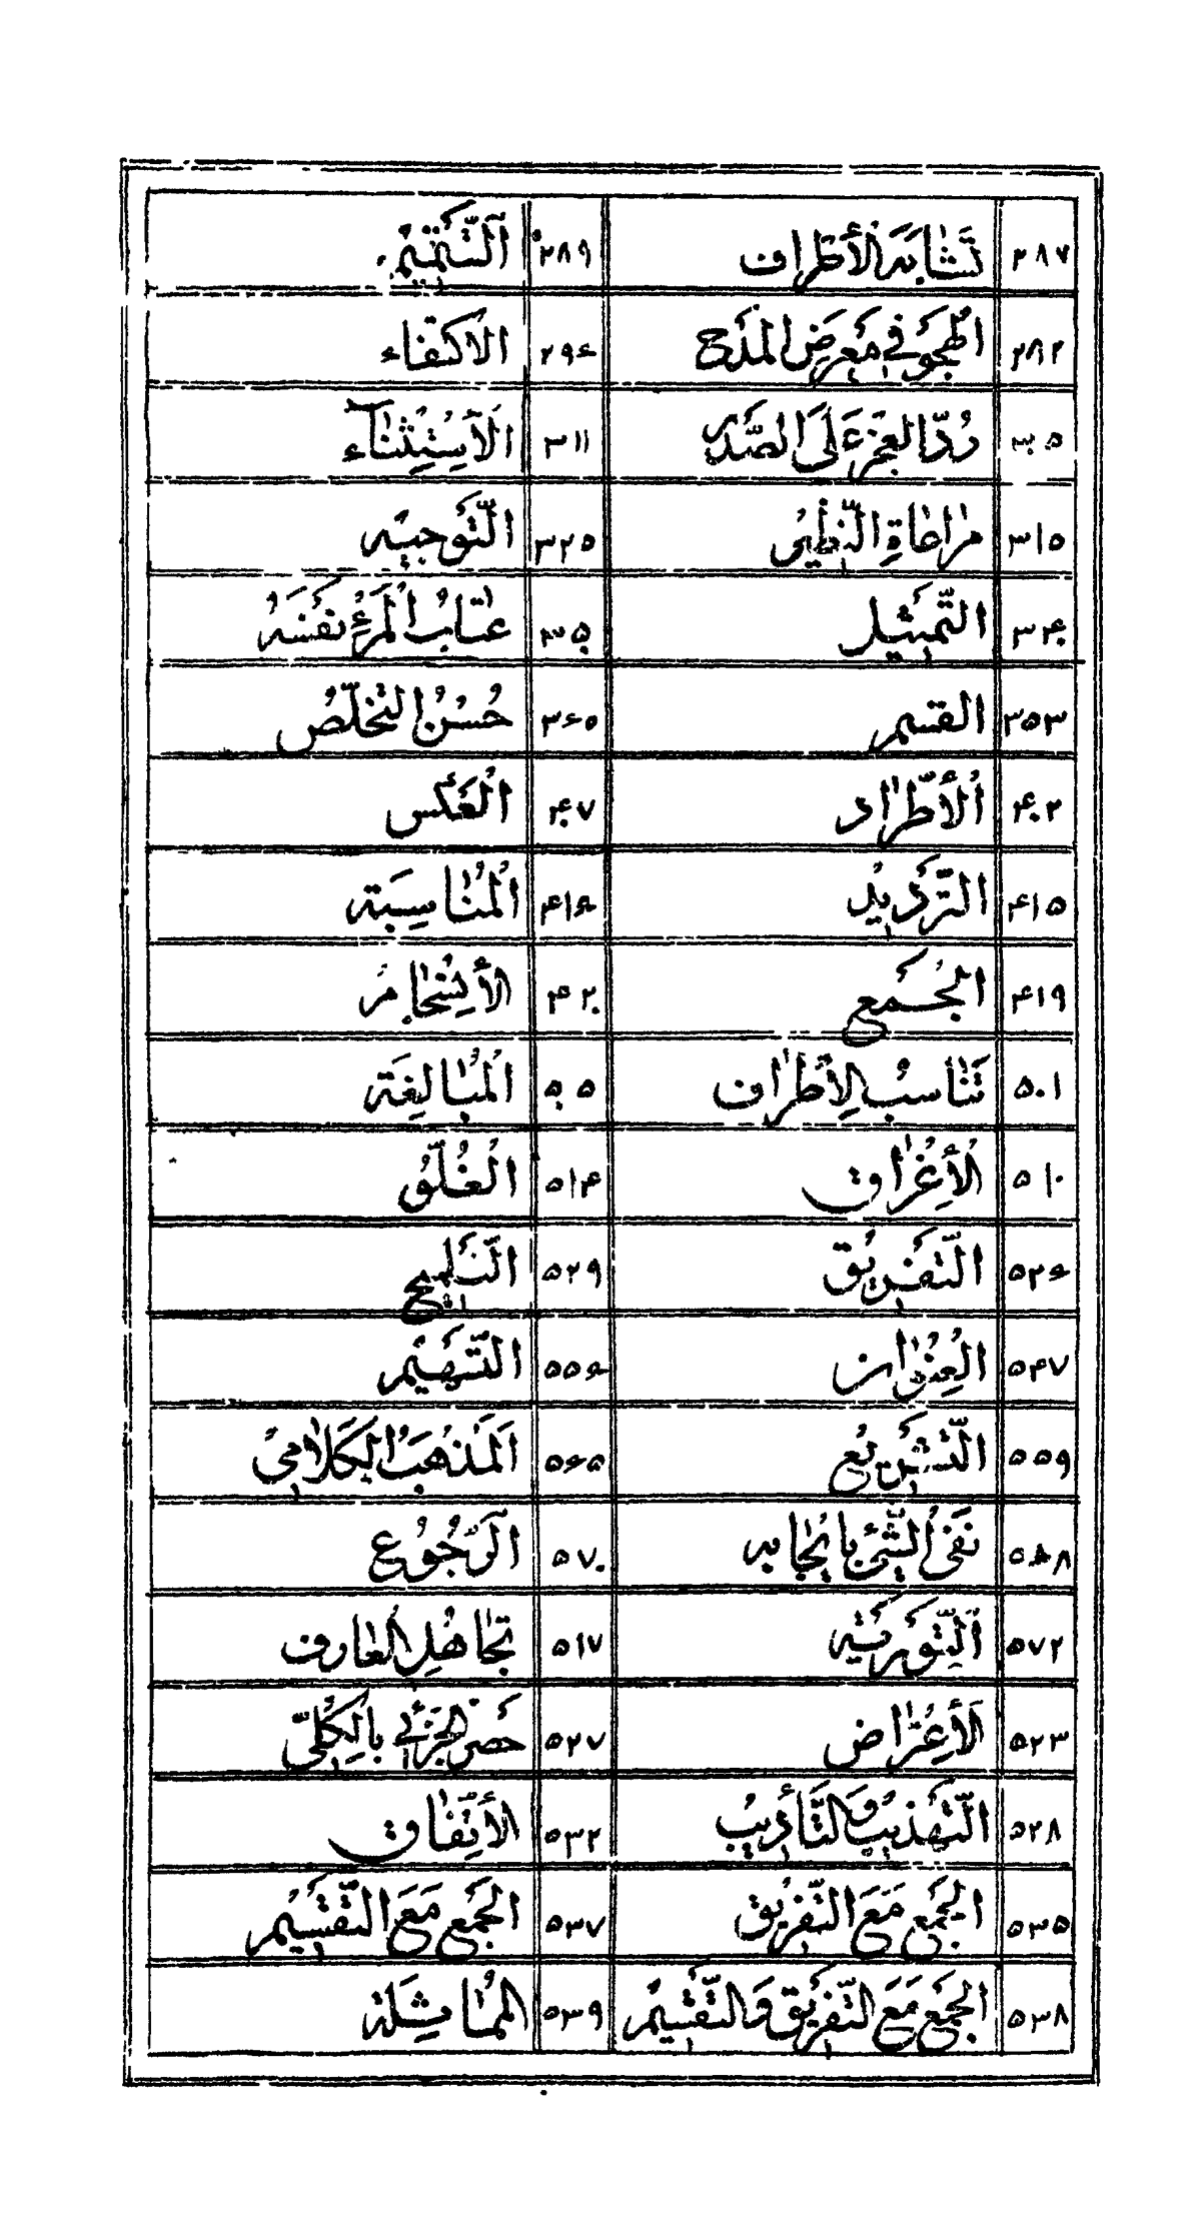 ٢٨٧ تَشَابَهُ الْأَطْرَاف ٢٨٩ اَلتَّتْمِيْمُ
٢٨٢ الْهَجْوُ فِي مَعْرَضِ الْمَدْحِ ٢٩۶ الاكتفاء
٣٠٥ رُدّ العَجْزِ عَلَى الصَّدْرِ ٣١١ اَلْاَسْتِثْنَاء
٣١٥ مراعاةِ النَّظِيْرُ ٣٢٥ التَّوْجِيْه
٣۴٠ التَّمْثِيْل ٣٥٠ عتَابُ الْمَرْءِ نَفْسَهُ
٣٥٣ القسيم ٣۶٥ حُسْنُ التَّخَلُّصُ
۴٠٢ اْلأطّرَاد ۴٠٧ الْعَكْس
۴١٥ التَّرْدِيْد ۴١۶ الْمُنَاسِبَة
۴١٩ الْجَمع ۴٢٠ الأنْسِجَامُ
٥٠١ تَنَاسبُ الِأَطْرَاف ٥٠٥ الْمُبَالِغَة
٥١٠ اْلأِغْرَاق ٥١۴ الْغُلُّوُ
٥٢۶ التَّفْرِيْق ٥٢٩ التَّلْمِيْح
٥۴٧ الْعِنْوَان ٥٥۶ التَّسْهِيْم
٥٥٩ التَّشْرِيْع ٥۶٥ اَلْمَذْهَبُ الكَلَامِيْ
٥٨٨ نَفْيُ الشَّيْئِ بِايْجَابِه ٥٧٠ اَلرُّجُوْع
٥٧٢ اَلتِّوْرِيَة ٥١٧ تجَاهُلِ العَارف
٥٢٣ اَلأِعْتْرَاض ٥٢٧ حَصْرُ الجُزْئِي بالِكُلِيّ
٥٢٨ التَّهْذِيْبُ وَالتَّأْدِيْبُ ٥٣٢ الأتِّفَاق
٥٣٥ الجَمْع مَعَ التَّفْرِيْق ٥٣٧ الجَمْع مَعَ التَّقْسِيْم
٥٣٨ الجَمْع مَعَ التَّفْرِيْق وَالتَّقْسِيْم ٥٣٩ المْمَاثِلَة